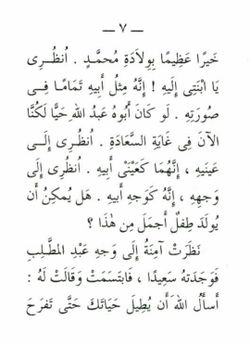 — ٧ —
خَيرًا عَظِيمًا بِوِلَادَةِ مُحَمَّدٍ . اُنظُرِى
يَا ابْنَتِى إِلَيهِ ! إِنَّهُ مِثْلُ أَبِيهِ تَمَامًا فِى
صُورَتِهِ . لَو كَانَ أَبُوهُ عَبدُ اللهِ حَيًّا لَكُنَّا
الآنَ فِى غَايَةِ السَّعَادَةِ . اُنظُرِى إِلَـى
عَينَيهِ ، إِنَّهُمَا كَعَيْنَىْ أَبِيهِ . اُنظُرِى إِلَى
وَجهِهِ ، إِنَّهُ كَوَجهِ أَبِيهِ . هَل يُمكِنُ أَن
يُولَدَ طِفلٌ أَجمَلُ مِن هٰذَا ؟
نَظَرَتْ آمِنَةُ إِلَى وَجهِ عَبْدِ المطَّلِبِ
فَوَجَدَتهُ سَعِيدًا ، فَابتَسَمَتْ وَقَالَتْ لَهُ :
أَسأَلُ اللهَ أَن يُطِيلَ حَيَاتَكَ حَتَّى تَفرَحَ